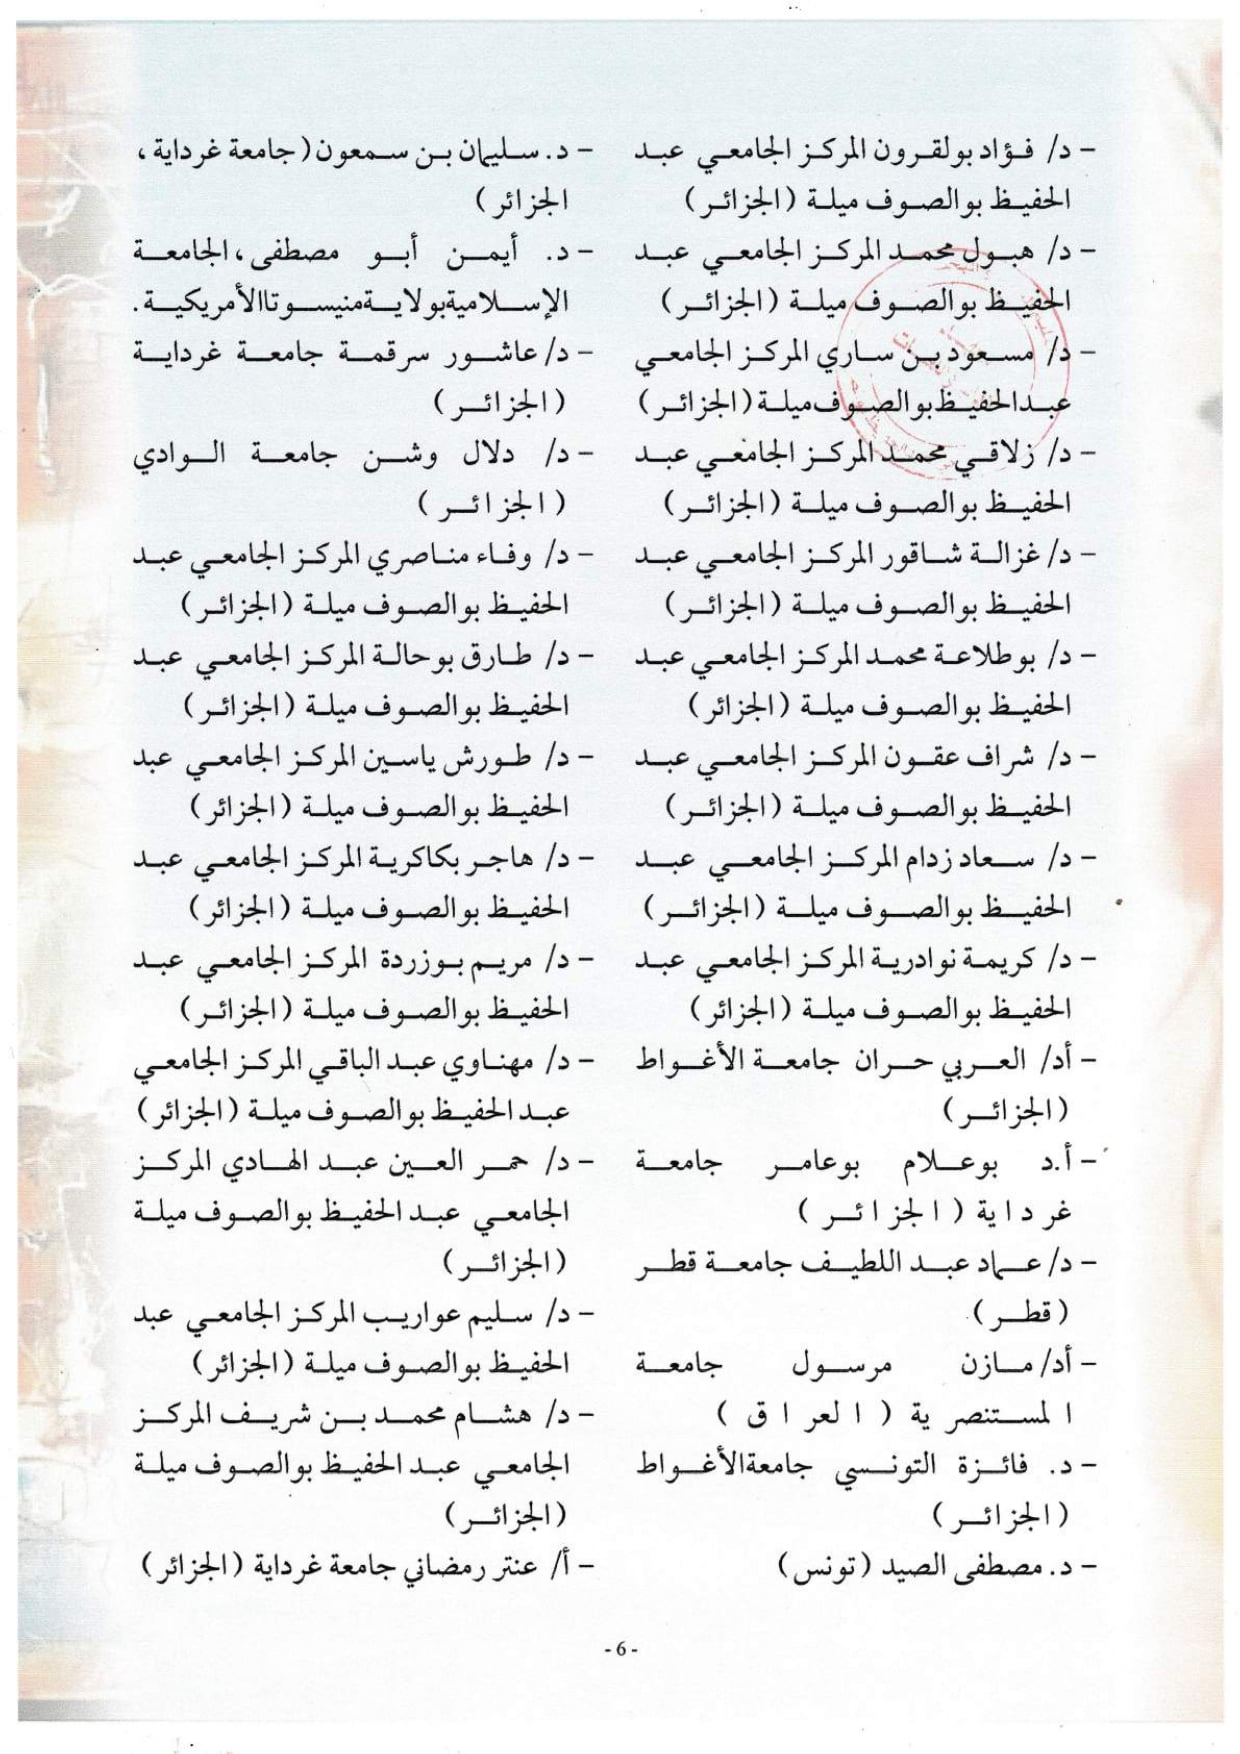 – د/ فؤاد بولقرون المركز الجامعي عبد
الحفيظ بوالصوف ميلة (الجزائر)
– د/ هبول محمد المركز الجامعي عبد
الحفيظ بوالصوف ميلة (الجزائر)
– د/ مسعود بن ساري المركز الجامعي
عبدالحفيظ بوالصوف ميلة (الجزائر)
– د/ زلاقي محمد المركز الجامعي عبد
الحفيظ بوالصوف ميلة (الجزائر)
– د/ غزالة شاقور المركز الجامعي عبد
الحفيظ بوالصوف ميلة (الجزائر)
– د/ بوطلاعة محمد المركز الجامعي عبد
الحفيظ بوالصوف ميلة (الجزائر)
– د/ شراف عقون المركز الجامعي عبد
الحفيظ بوالصوف ميلة (الجزائر)
– د/ سعاد زدام المركز الجامعي عبد
الحفيظ بوالصوف ميلة (الجزائر)
– د/ كريمة نوادرية المركز الجامعي عبد
الحفيظ بوالصوف ميلة (الجزائر)
– أد/ العربي حران جامعة الأغواط
(الجزائر)
– أ.د بوعلام بوعامر جامعة
غرداية (الجزائر)
– د/ عماد عبد اللطيف جامعة قطر
(قطر)
– أد/ مازن مرسول جامعة
المستنصرية (العراق)
– د. فائزة التونسي جامعةالأغواط
(الجزائر)
– د. مصطفى الصيد (تونس)
– د. سليمان بن سمعون( جامعة غرداية ،
الجزائر)
– د. أيمن أبو مصطفى، الجامعة
الإسلاميةبولايةمنيسوتاالأمريكية.
– د/ عاشور سرقمة جامعة غرداية
(الجزائر)
– د/ دلال وشن جامعة الوادي
(الجزائر)
– د/ وفاء مناصري المركز الجامعي عبد
الحفيظ بوالصوف ميلة (الجزائر)
– د/ طارق بوحالة المركز الجامعي عبد
الحفيظ بوالصوف ميلة (الجزائر)
– د/ طورش ياسين المركز الجامعي عبد
الحفيظ بوالصوف ميلة (الجزائر)
– د/ هاجر بكاكرية المركز الجامعي عبد
الحفيظ بوالصوف ميلة (الجزائر)
– د/ مريم بوزردة المركز الجامعي عبد
الحفيظ بوالصوف ميلة (الجزائر)
– د/ مهناوي عبد الباقي المركز الجامعي
عبد الحفيظ بوالصوف ميلة (الجزائر)
– د/ حمر العين عبد الهادي المركز
الجامعي عبد الحفيظ بوالصوف ميلة
(الجزائر)
– د/ سليم عواريب المركز الجامعي عبد
الحفيظ بوالصوف ميلة (الجزائر)
– د/ هشام محمد بن شريف المركز
الجامعي عبد الحفيظ بوالصوف ميلة
(الجزائر)
– أ/ عنتر رمضاني جامعة غرداية (الجزائر)
- 6 -